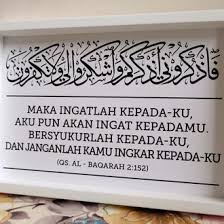 فَاذْكُرُونِي أَذْكُرْكُمْ وَاشْكُرُوا لِي وَلَا تَكْفُرُونِ
MAKA INGATLAH KEPADA-KU,
AKU PUN AKAN INGAT KEPADAMU.
BERSYUKURLAH KEPADA-KU,
DAN JANGANLAH KAMU INGKAR KEPADA-KU
(QS. AL - BAQARAH 2:152)